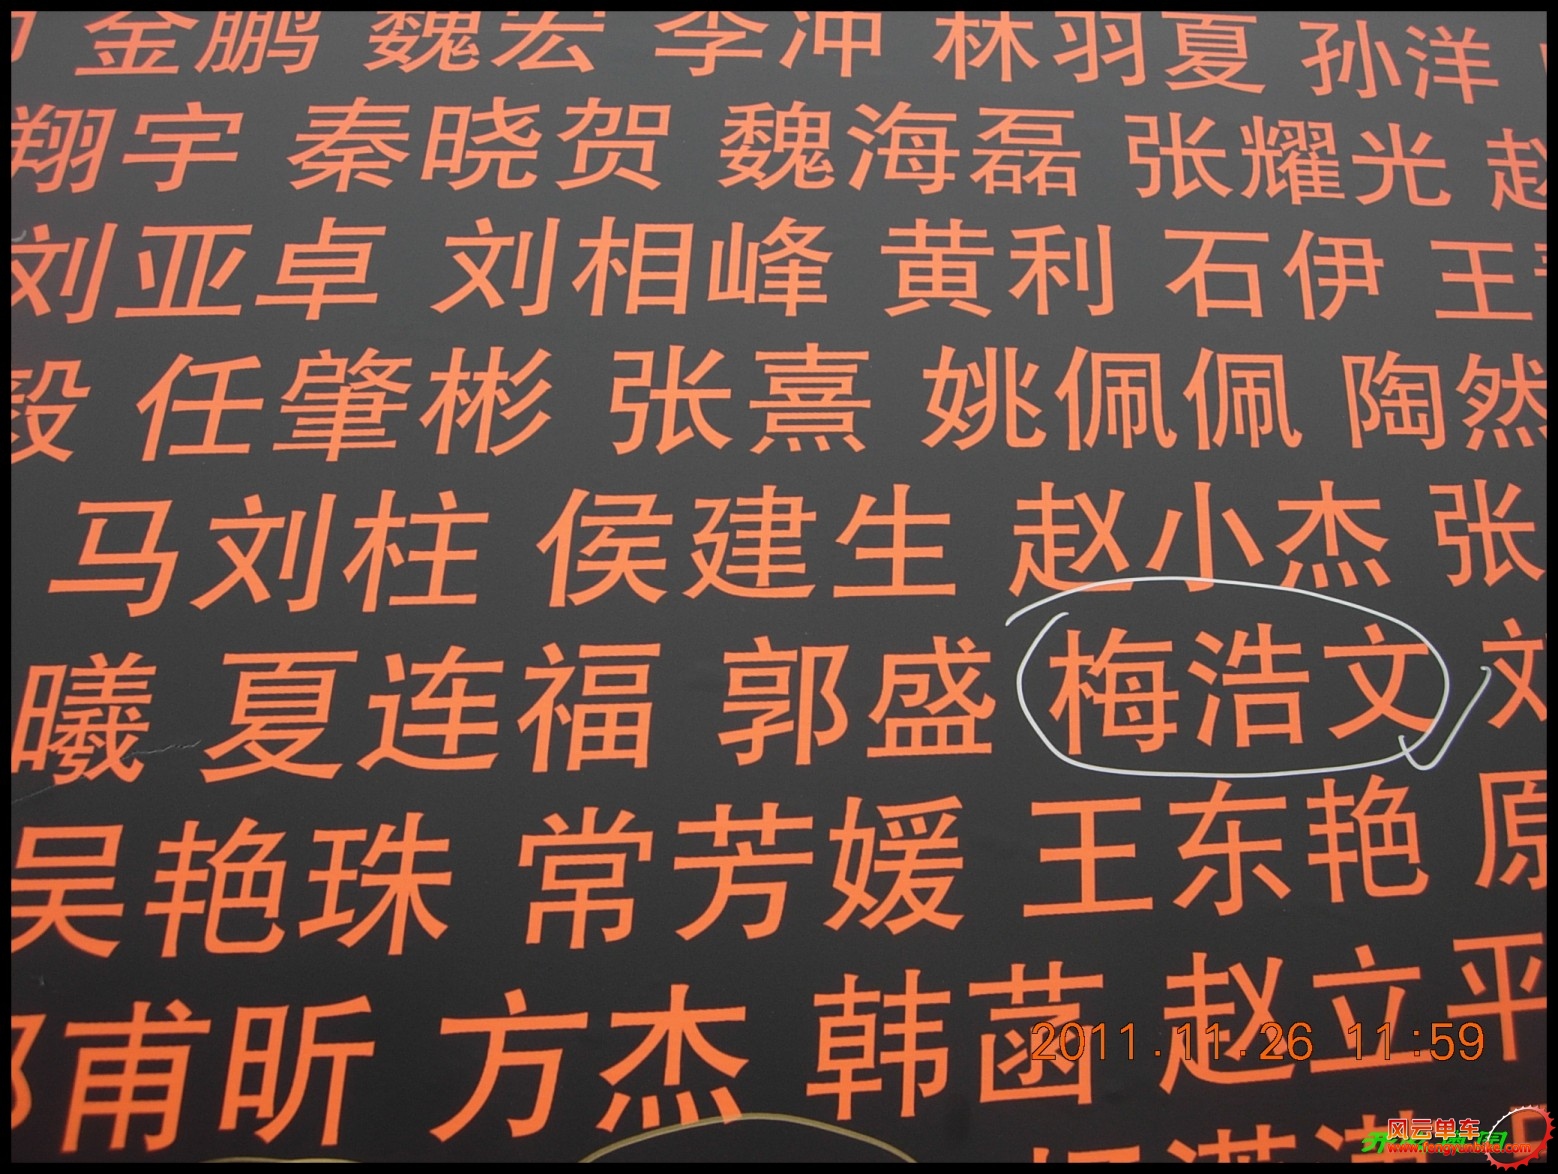 金鹏 魏宏 李冲 林羽夏 孙洋
翔宇 秦晓贺 魏海磊 张耀光 赵
刘亚卓 刘相峰 黄利 石伊 王
毅 任肇彬 张熹 姚佩佩 陶然
马刘柱 侯建生 赵小杰 张
曦 夏连福 郭盛 梅浩文 刘
吴艳珠 常芳媛 王东艳 原
甫昕 方杰 韩菡 赵立平
2011.11.26 11:59
风云单车
www.fengyunbike.com